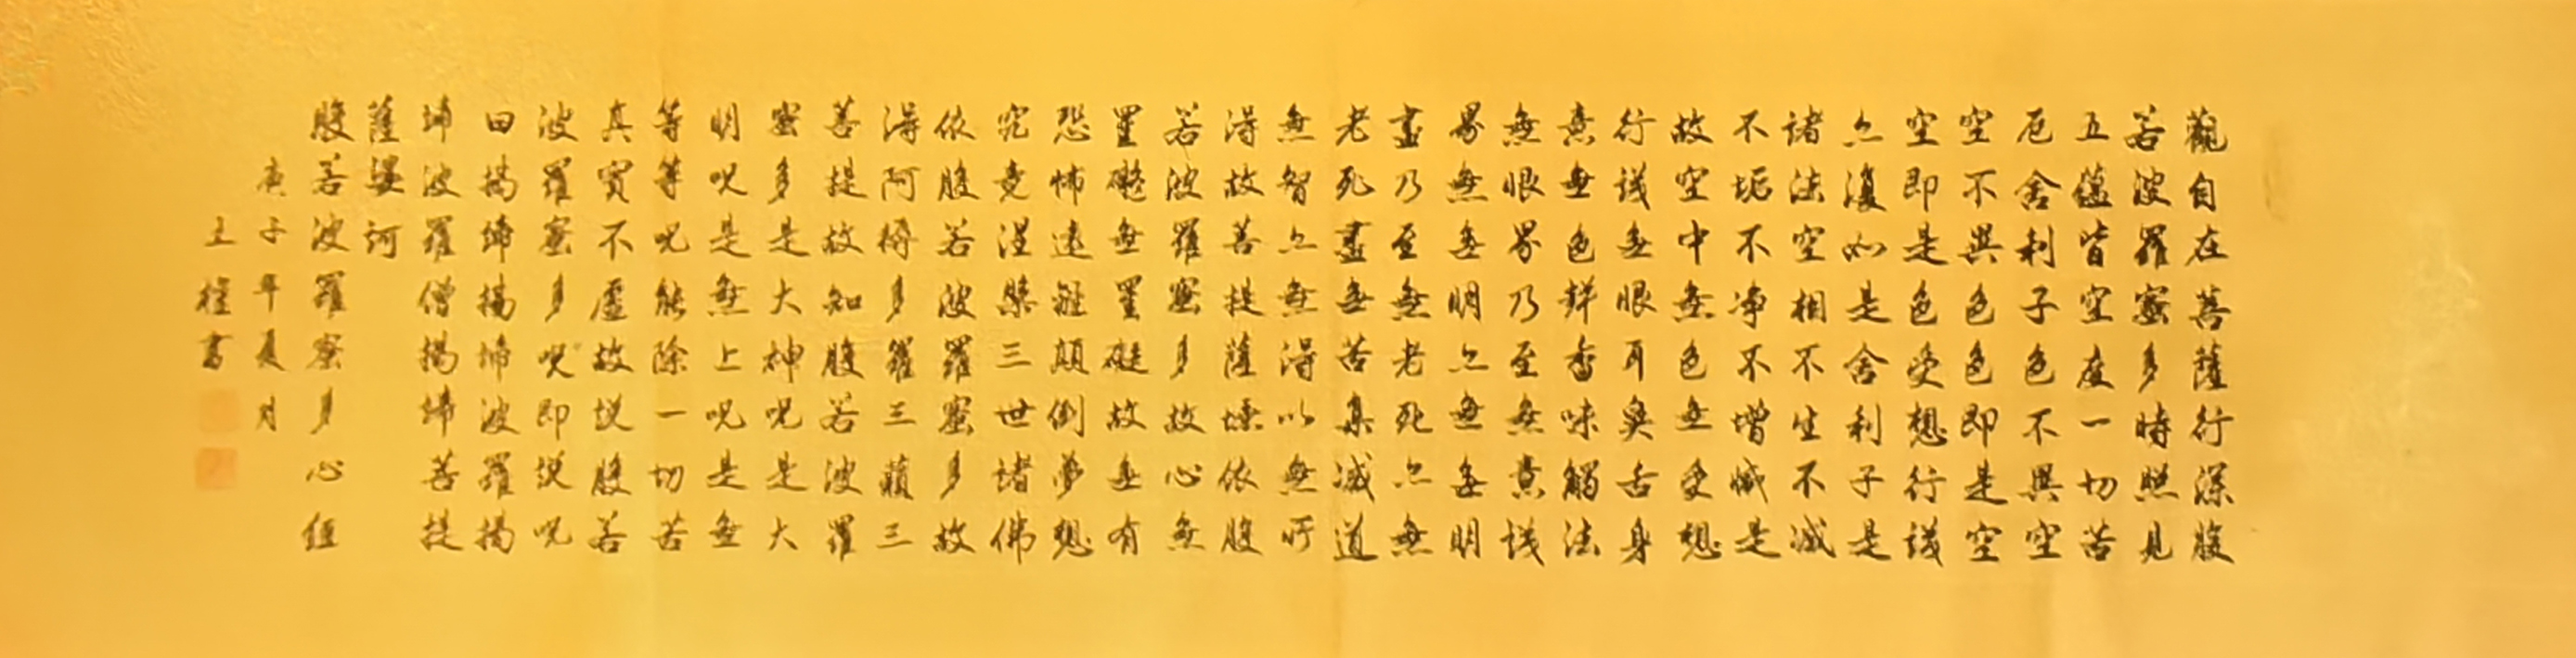 觀自在菩薩行深般
若波羅蜜多時照見
五蘊皆空度一切苦
厄舍利子色不異空
空不異色色即是空
空即是色受想行識
亦復如是舍利子是
諸法空相不生不滅
不垢不净不增減是
故空中無色無受想
行識無眼耳鼻舌身
意無色聲香味觸法
無眼界乃至無意識
界無無明亦無無明
盡乃至無老死亦無
老死盡無苦集滅道
無智亦無得以無所
得故菩提薩埵依般
若波羅蜜多故心無
罣礙無罣礙故無有
恐怖遠離顛倒夢想
究竟涅槃三世諸佛
依般若波羅蜜多故
得阿耨多羅三藐三
菩提故知般若波羅
蜜多是大神咒是大
明咒是無上咒是無
等等咒能除一切苦
真實不虛故說般若
波羅蜜多咒即說咒
曰揭諦揭諦波羅揭
諦波羅僧揭諦菩提
薩婆訶
般若波羅蜜多心經
庚子年夏月
王書